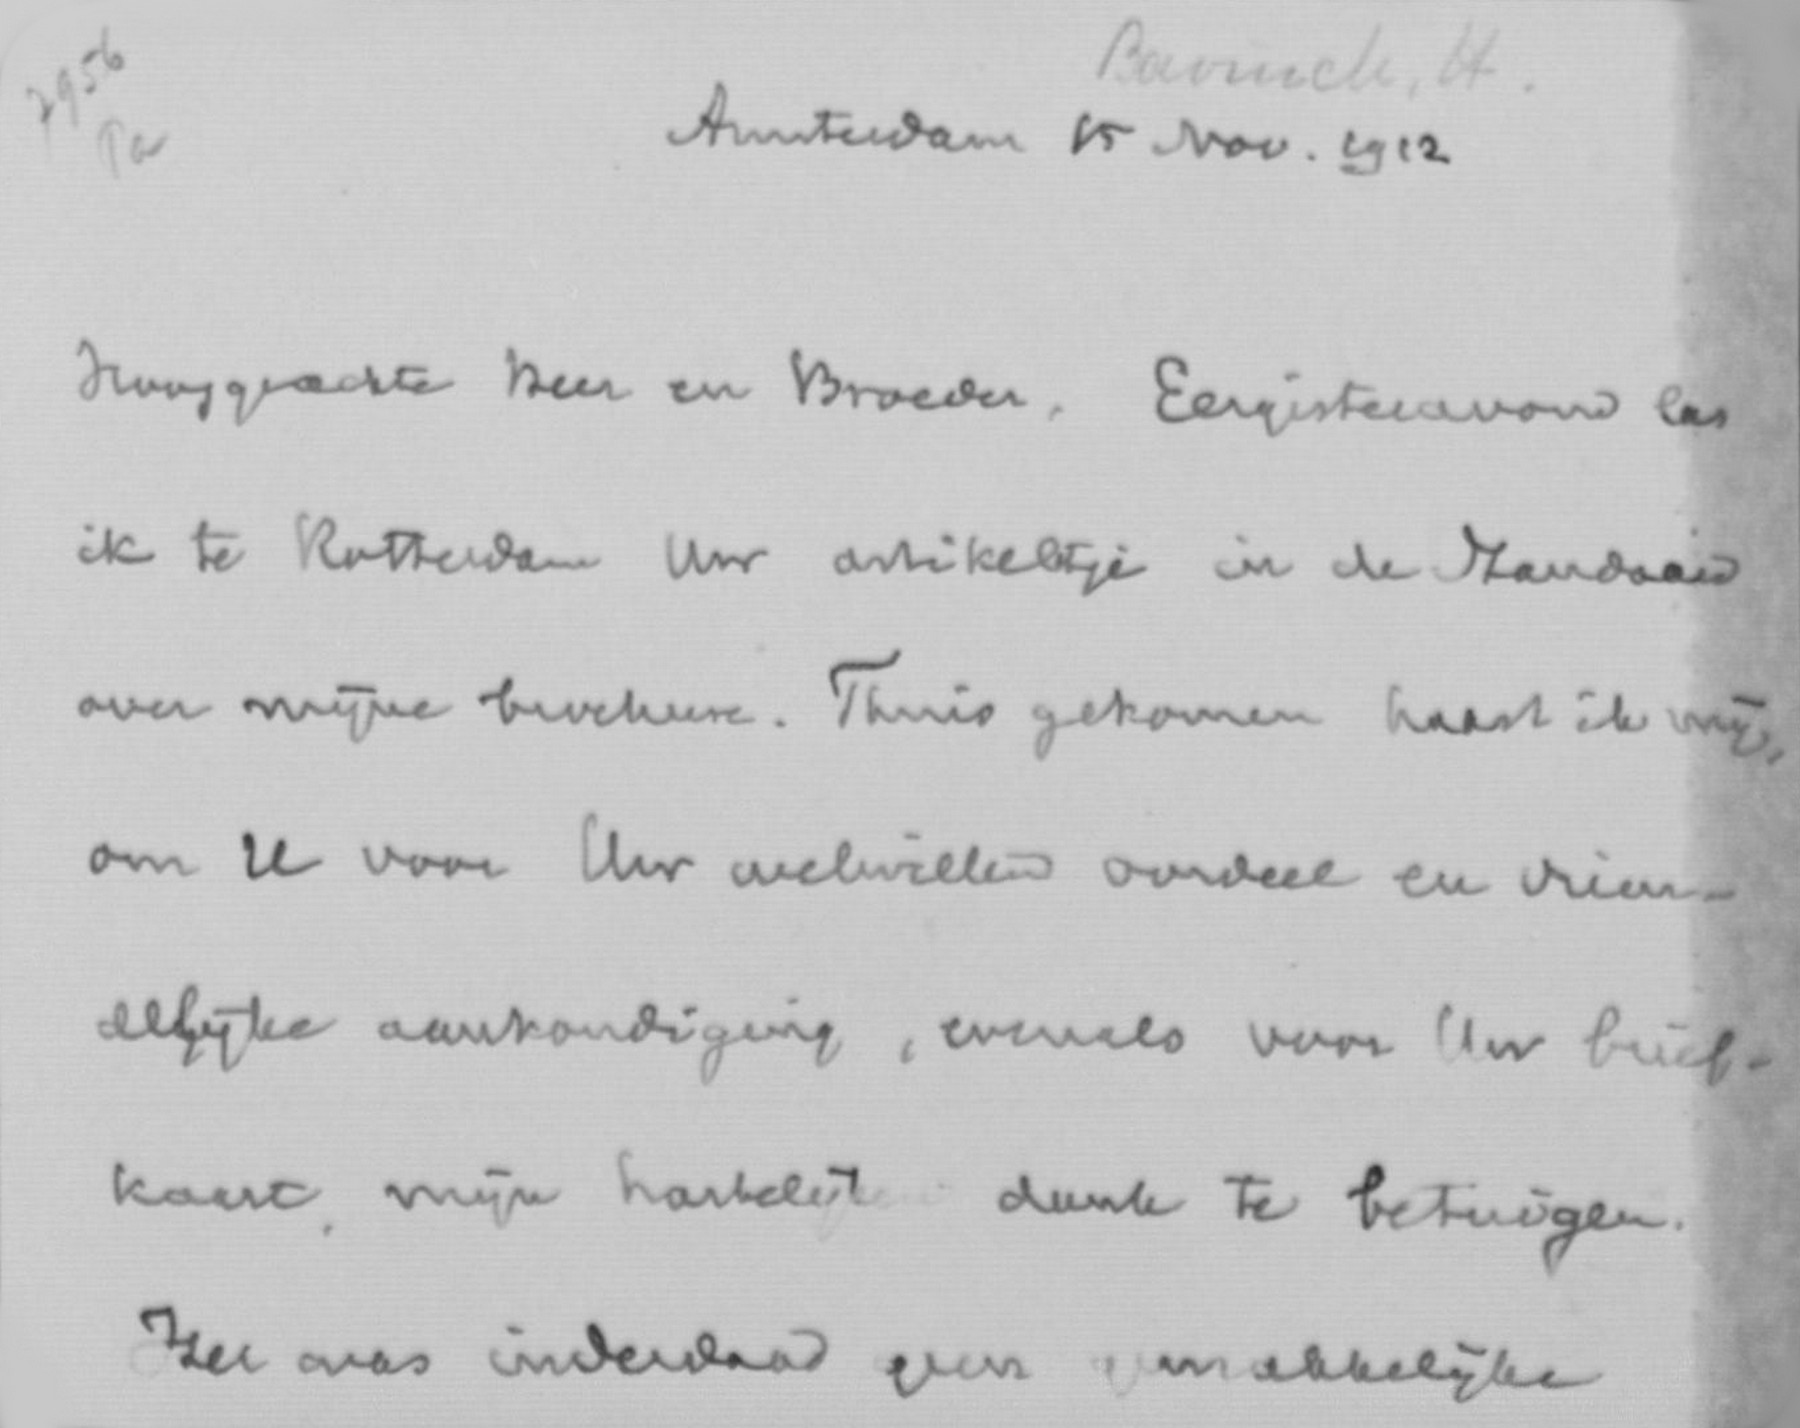 Bavinck, H.
2956
Pa
Amsterdam 15 Nov. 1912
Hooggeachte Heer en Broeder. Eergisteravond las
ik te Rotterdam Uw artikeltje in de Standaard
over mijne brochure. Thuis gekomen haast ik mij,
om U voor Uw welwillend oordeel en vrien-
delijke aankondiging, evenals voor Uw brief-
kaart, mijn hartelijk dank te betuigen.
Het was inderdaad geen gemakkelijke